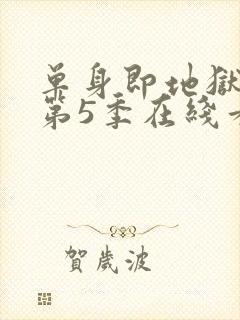 单身即地獄
第5季在綫
賀歲波